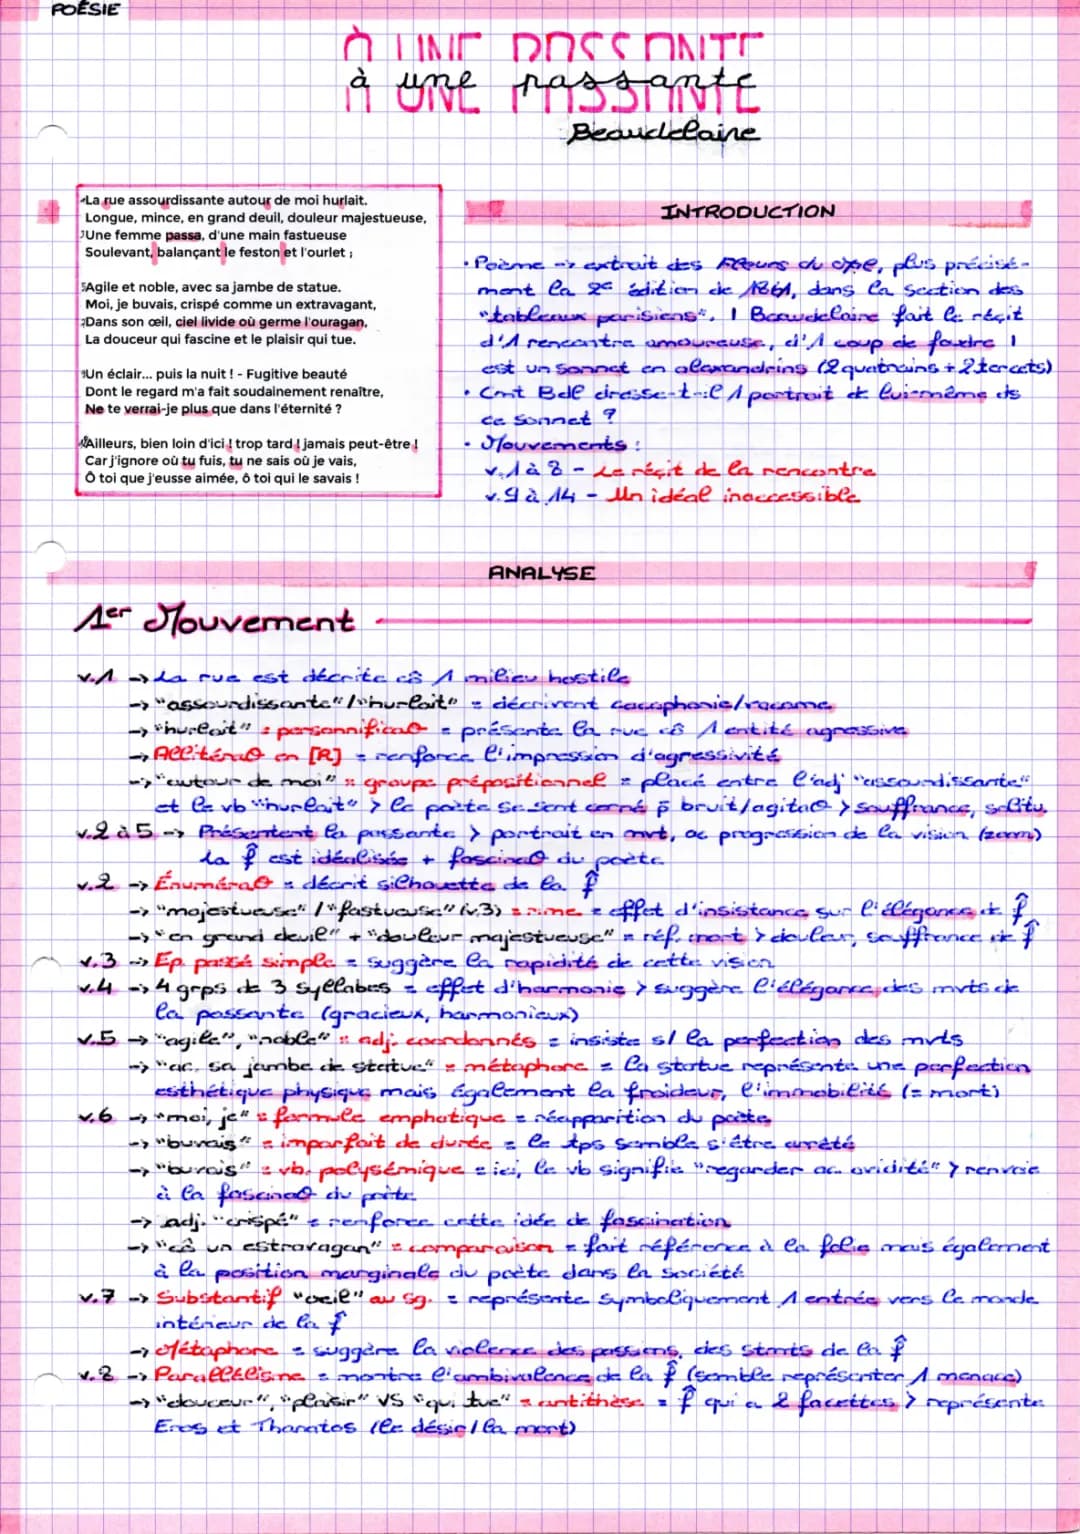 POÉSIE
À UNE PASSANTE
à une passante
Beaudelaire
La rue assourdissante autour de moi hurlait.
Longue, mince, en grand deuil, douleur majestueuse,
Une femme passa, d'une main fastueuse
Soulevant, balançant le feston et l'ourlet ;
Agile et noble, avec sa jambe de statue.
Moi, je buvais, crispé comme un extravagant,
Dans son œil, ciel livide où germe l'ouragan,
La douceur qui fascine et le plaisir qui tue.
Un éclair... puis la nuit ! - Fugitive beauté
Dont le regard m'a fait soudainement renaître,
Ne te verrai-je plus que dans l'éternité ?
Ailleurs, bien loin d'ici ! trop tard ! jamais peut-être !
Car j'ignore où tu fuis, tu ne sais où je vais,
Ô toi que j'eusse aimée, ô toi qui le savais !
INTRODUCTION
• Poème -> extrait des Fleurs du , plus précisé-
ment la 2e édition de 1861, dans la section des
"tableaux parisiens". | Beaudelaire fait le récit
d'1 rencontre amoureuse, d'1 coup de foudre |
est un sonnet en alexandrins (2 quatrains + 2 tercets)
• Cmt Bdl dresse-t-il 1 portrait de lui-même ds
ce sonnet ?
• Mouvements :
v.1 à 8 - Le récit de la rencontre
v.9 à 14 - Un idéal inaccessible
ANALYSE
1er Mouvement
v.1 -> La rue est décrite cô 1 milieu hostile
-> "assourdissante"/"hurlait" = décrivent cacophonie/vacarme
-> "hurlait" = personnificaø = présente la rue cô 1 entité agressive
-> Allitéraø en [R] = renforce l'impression d'agressivité
-> "autour de moi" = groupe prépositionnel = placé entre l'adj "assourdissante"
et le vb "hurlait" > le poète se sent cerné p̄ bruit/agitaø > souffrance, solitu.
v.2 à 5 -> Présentent la passante > portrait en mvt, ac progression de la vision (zoom)
la f̂ est idéalisée + fascinaø du poète
v.2 -> Énuméraø = décrit silhouette de la f̂
-> "majestueuse"/"fastueuse" (v.3) = rime = effet d'insistance sur l'élégance de f̂
-> "en grand deuil" + "douleur majestueuse" = réf. mort > douleur, souffrance de f̂
v.3 -> Ep. passé simple = suggère la rapidité de cette vision
v.4 -> 4 grps de 3 syllabes = effet d'harmonie > suggère l'élégance des mvts de
la passante (gracieux, harmonieux)
v.5 -> "agile", "noble" = adj. coordonnés = insiste s/ la perfection des mvts
-> "ac. sa jambe de statue" = métaphore = la statue représente une perfection
esthétique physique mais également la froideur, l'immobilité (= mort)
v.6 -> "moi, je" = formule emphatique = réapparition du poète
-> "buvais" = imparfait de durée = le tps semble s'être arrêté
-> "buvais" = vb. polysémique = ici, le vb signifie "regarder ac avidité" > renvoie
à la fascinaø du poète
-> adj. "crispé" = renforce cette idée de fascination
-> "cô un estravagan" = comparaison = fait référence à la folie mais également
à la position marginale du poète dans la société
v.7 -> Substantif "oeil" au sg. = représente symboliquement 1 entrée vers le monde
intérieur de la f̂
-> Métaphore = suggère la violence des passions, des stmts de la f̂
v.8 -> Parallélisme = montre l'ambivalence de la f̂ (semble représenter 1 menace)
-> "douceur", "plaisir" VS "qui tue" = antithèse = f̂ qui a 2 facettes > représente
Eros et Thanatos (le désir/la mort)